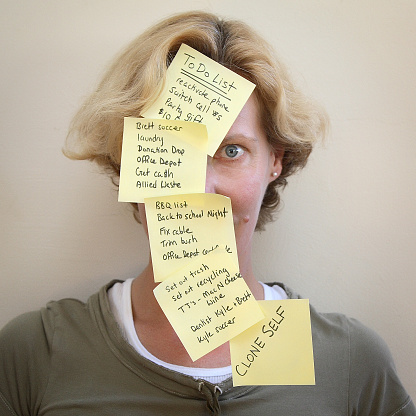 To Do List
reactivate phone
Switch cell #s
Party gift
$10
Brett soccer
laundry
Donation Drop
Office Depot
Get cash
Allied Waste
BBQ list
Back to school Night
Fix cable
Trim bush
Office Depot
Set out trash
Set out recycling
TJ's - Mac N Cheese
Wine
Dentist Kyle & Brett
Kyle soccer
CLONE SELF